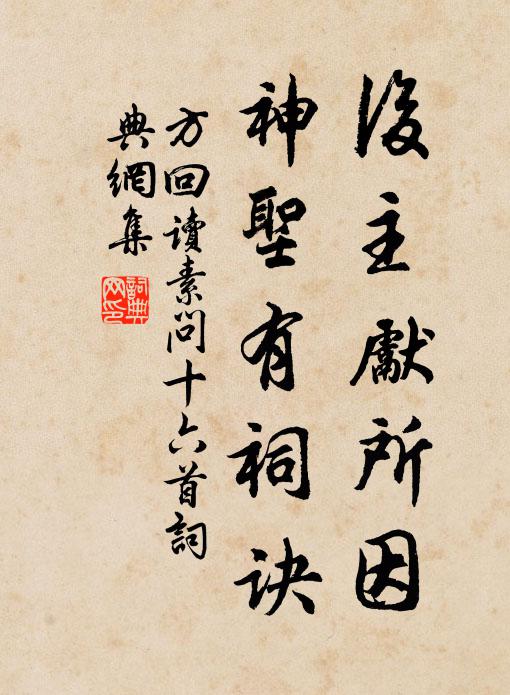 後主獻所因
神聖有祠訣
方回讀素問十六首詞
典網集
詞典網印